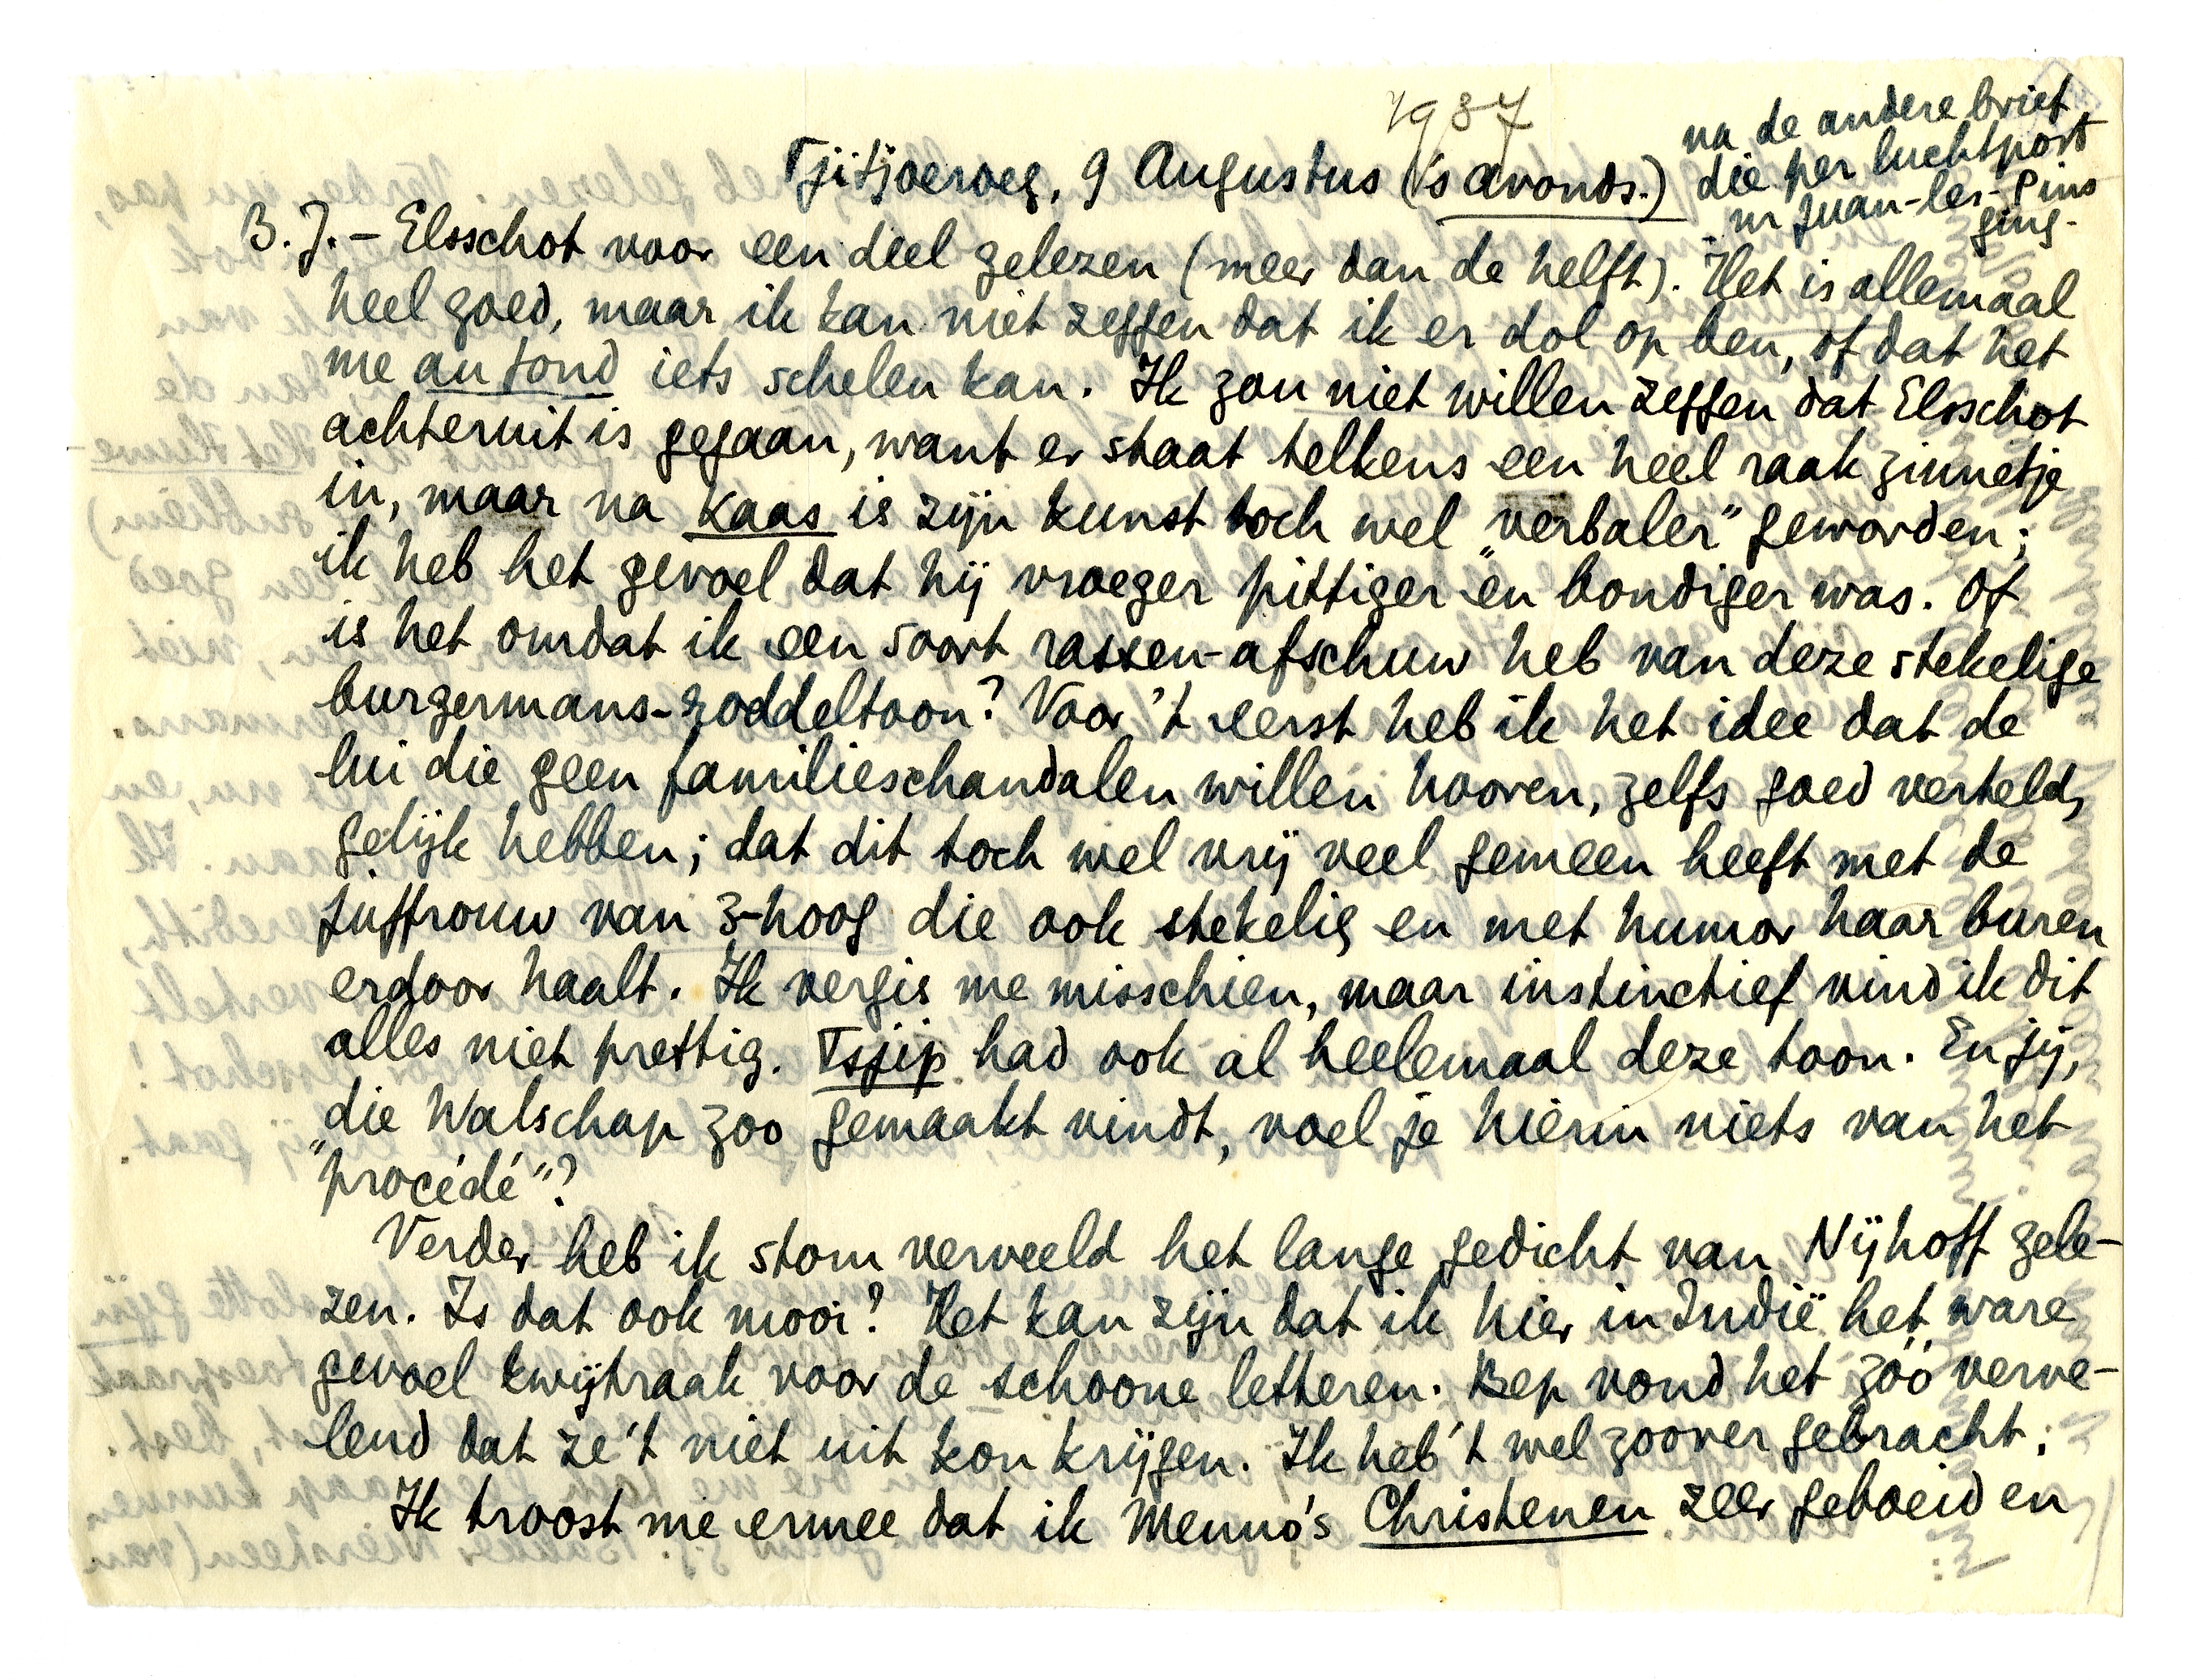 1937
Tjitjoeroeg, 9 Augustus ('s avonds.)
na de andere brief
die per luchtpost
nr Juan-les-Pins
ging.
B.J. – Elsschot voor een deel gelezen (meer dan de helft). Het is allemaal
heel goed, maar ik kan niet zeggen dat ik er dol op ben, of dat het
me au fond iets schelen kan. Ik zou niet willen zeggen dat Elsschot
achteruit is gegaan, want er staat telkens een heel raak zinnetje
in, maar na Kaas is zijn kunst toch wel „verbaler” geworden;
ik heb het gevoel dat hij vroeger pittiger en bondiger was. Of
is het omdat ik een soort rassen-afschuw heb van deze stekelige
burgermans-roddeltoon? Voor 't eerst heb ik het idee dat de
lui die geen familieschandalen willen hooren, zelfs goed verteld,
gelijk hebben; dat dit toch wel vrij veel gemeen heeft met de
juffrouw van 3-hoog die ook stekelig en met humor haar buren
erdoor haalt. Ik vergis me misschien, maar instinctief vind ik dit
alles niet prettig. Tsjip had ook al heelemaal deze toon. En jij,
die Walschap zoo gemaakt vindt, voel je hierin niets van het
„procédé”?
Verder heb ik stom verveeld het lange gedicht van Nijhoff gele-
zen. Is dat ook mooi? Het kan zijn dat ik hier in Indië het ware
gevoel kwijtraak voor de schoone letteren. Bep vond het zóó verve-
lend dat ze 't niet uit kon krijgen. Ik heb 't wel zoover gebracht.
Ik troost me ermee dat ik Menno's Christenen zeer geboeid en